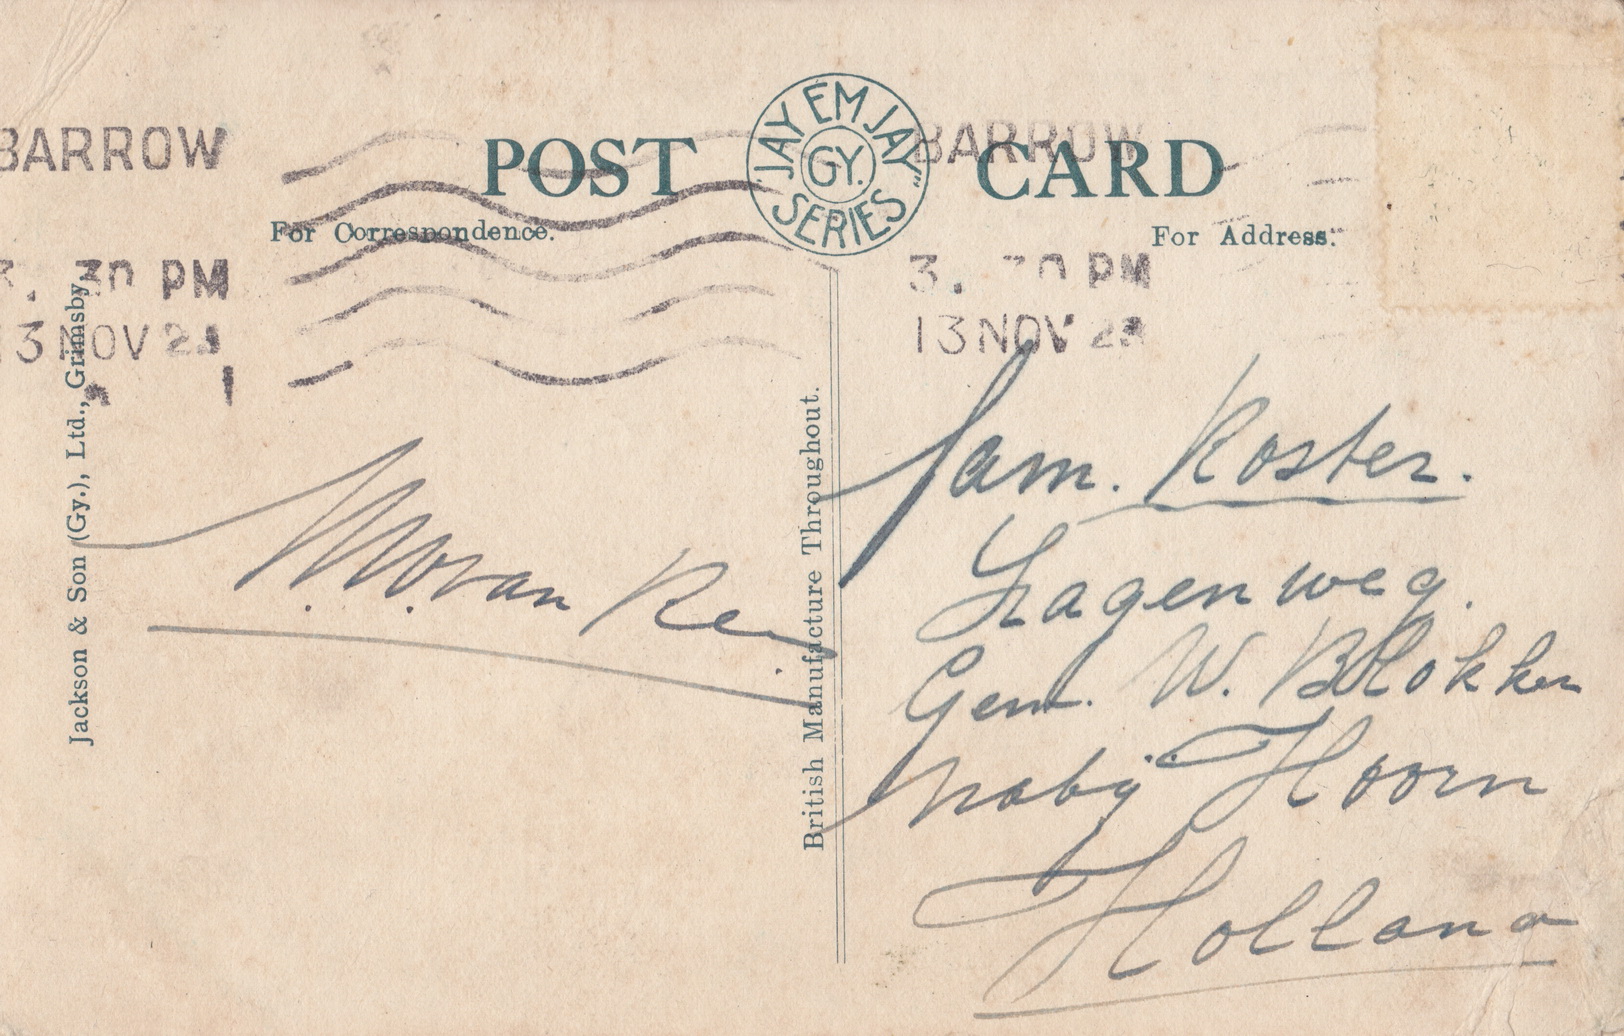 BARROW
3. 30 PM
13 NOV
POST CARD
"JAY EM JAY"
GY.
SERIES
BARROW
3. 30 PM
13 NOV
For Correspondence.
For Address.
Jackson & Son (Gy.), Ltd., Grimsby.
British Manufacture Throughout.
Fam. Koster.
Lagenweg.
Gem. W. Blokker
naby Hoorn
Holland